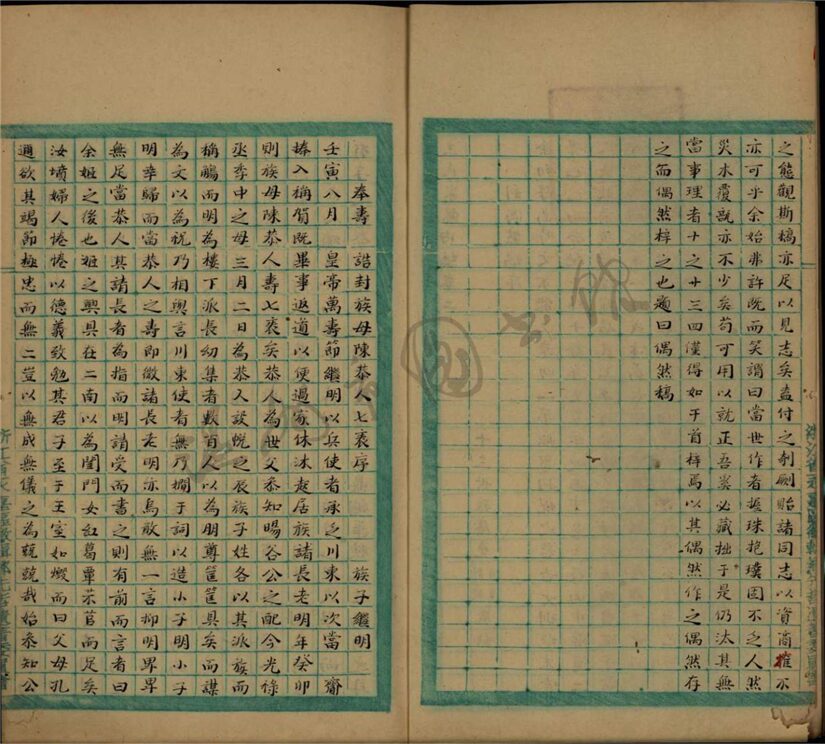 之能觀斯稿亦足以見志矣盍付之剞劂貽諸同志以資商榷不
亦可乎余始弗許既而笑謂曰當世作者握珠抱璞固不乏人然
災木覆瓿亦不少矣苟可用以就正吾奚必藏拙于是仍汰其無
當事理者十之十三四僅得如干首梓焉以其偶然作之偶然存
之而偶然梓之也題曰偶然稿
奉壽 誥封族母陳恭人七袠序 族子繼明
壬寅八月 皇帝萬壽節繼明以兵使者承乏川東以次當 齎
捧入稱賀既畢事返道以便過家休沐起居族諸長老明年癸卯
則族母陳恭人壽七袠矣恭人為世父叅知暘谷公之配今光祿
丞季中之母三月二日為恭人設帨之辰族子姓各以其派族而
稱觴而明為樓下派長幼集者數百人以為朋尊筐篚具矣而謀
為文以為祝乃相與言川東使者無乃嫺于詞以造小子明小子
明幸歸而當恭人之壽即微諸長老明亦烏敢無一言抑明畀畀
無足當恭人其請長者為指而明請受而書之則有前而言者曰
余姬之後也姬之興具在二南以為閨門女紅葛覃芣苢而足矣
汝墳婦人惓惓以德義致勉其君子至于王室如燬而曰父母孔
邇欲其竭節極忠而無二豈以無成無儀之為兢兢哉始叅知公